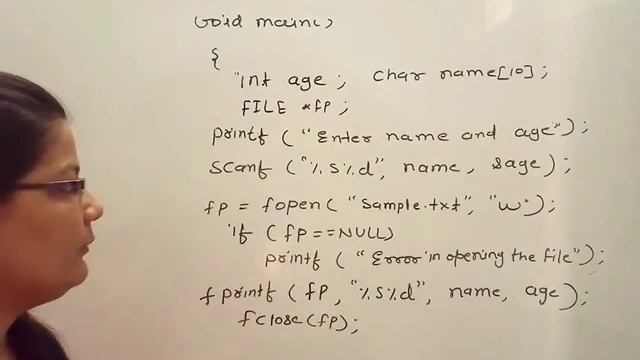 void main()
{
int age ; char name[10] ;
FILE *fp ;
printf ( "Enter name and age" ) ;
scanf ( "%s%d", name, &age ) ;
fp = fopen( "Sample.txt", "w" ) ;
if ( fp ==NULL)
printf ( "Error in opening the file" ) ;
fprintf ( fp , "%s%d", name, age ) ;
fclose(fp) ;